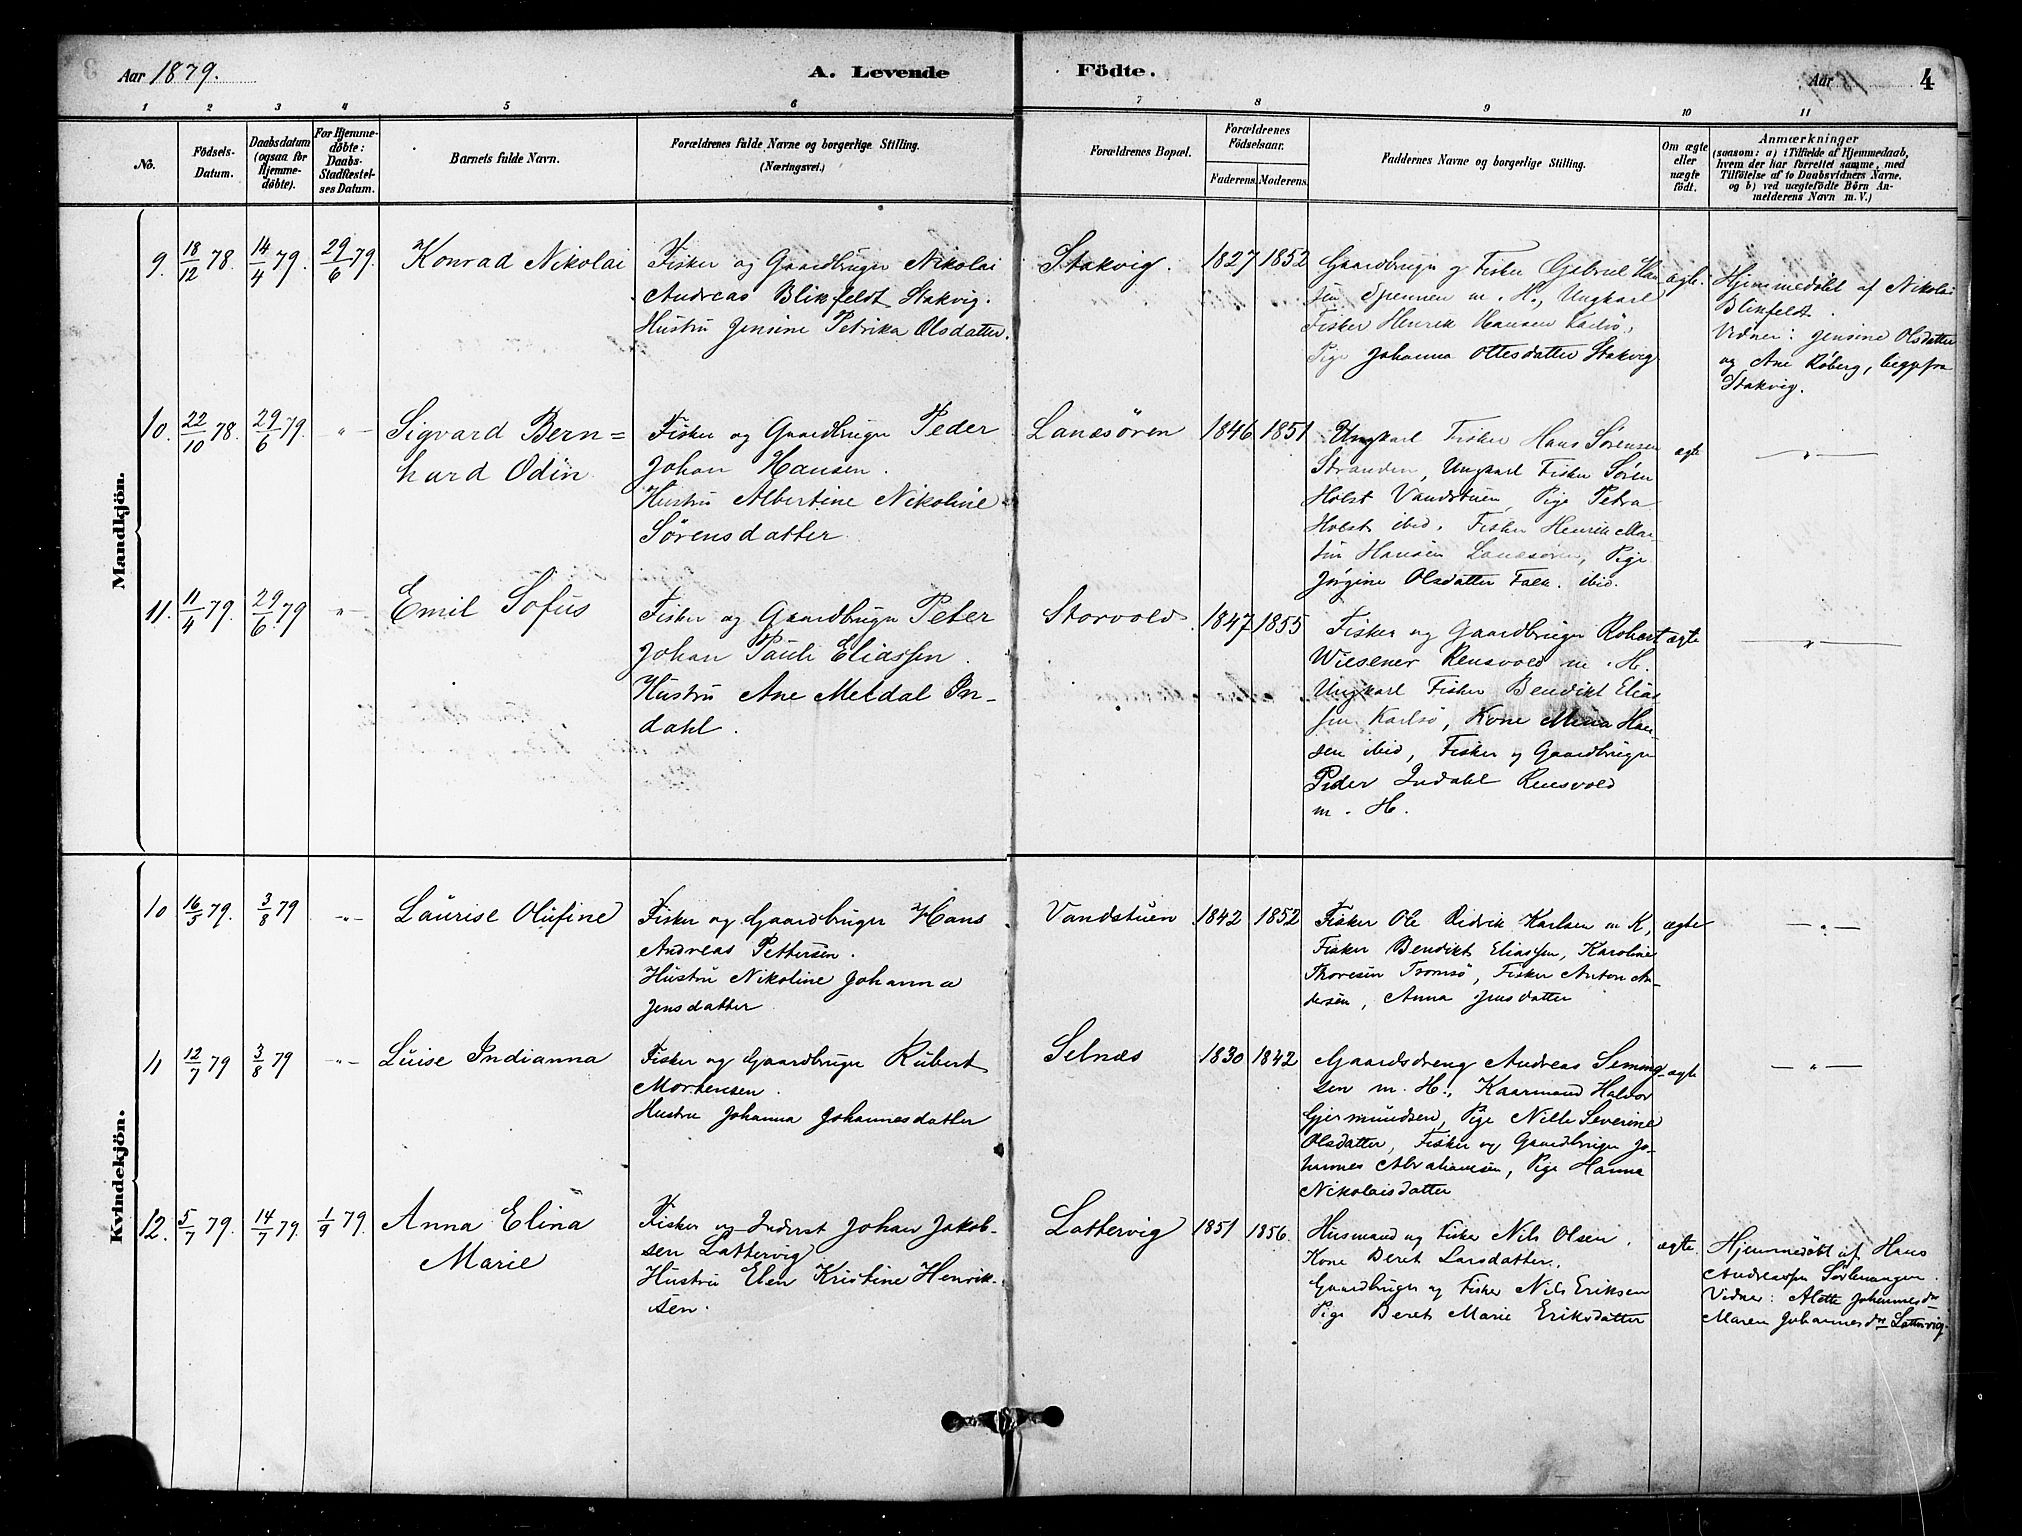 Aar 1879.
A. Levende Födte.
Aar
4
1 2 3 4 5 6 7 8 9 10 11
No.
Födsels-
Datum.
Daabsdatum
(ogsaa før
Hjemme-
døbte).
For Hjemme-
døbte:
Daabs-
Stadfæstel-
ses Datum.
Barnets fulde Navn.
Forældrenes fulde Navne og borgerlige Stilling.
(Næringsvei.)
Forældrenes Bopæl.
Forældrenes
Födselsaar.
Faderens. Moderens.
Faddernes Navne og borgerlige Stilling.
Om ægte
eller
uægte
født.
Anmærkninger
(saasom: a) i Tilfælde af Hjemmedaab,
hvem der har forrettet samme, med
Tilføielse af to Daabsvidners Navne,
og b) ved uægtefödte Börn An-
melderens Navn m. V.)
Mandkjön.
9. 18/12 78. 14/4 79. 29/6 79. Konrad Nikolai
Fisker og Gaardbruger Nikolai
Andreas Blikfeldt Stakvig.
Hustru Jensine Petrika Olsdatter.
Stakvig. 1827 1852
Gaardbruger og Fisker Gabriel Han-
sen Spennen m. H., Ungkarl
Fisker Henrik Hansen Karlsö,
Pige Johanna Ottesdatter Stakvig
ægte.
Hjemmedöbt af Nikolai
Blikfeldt.
Vidner: Jensine Olsdatter
og Ane Röberg, begge fra
Stakvig.
10. 22/10 78. 29/6 79. -"- Sigvard Bern=
hard Odin
Fisker og Gaardbruger Peder
Johan Hansen.
Hustru Albertine Nikoline
Sörensdatter.
Lanesören 1846 1851
Ungkarl Fisker Hans Sörensen
Stranden, Ungkarl Fisker Sören
Holst Vandstuen, Pige Petra
Holst ibid. Fisker Henrik Mar-
tin Hansen Lanesören, Pige
Jörgine Olsdatter Falk. ibid.
ægte
-"-
11. 11/4 79. 29/6 79 -"- Emil Sofus
Fisker og Gaardbruger Peter
Johan Pauli Eliassen.
Hustru Ane Meldal In-
dahl.
Storvold. 1847 1855
Fisker og Gaardbruger Robert
Wiesener Rensvold m. H.
Ungkarl Fisker Bendikt Elias-
sen Karlsö, Kone Mina Han-
sen ibid, Fisker og Gaardbruger
Peder Indahl Rensvold
m. H.
ægte
-"-
Kvindekjön.
10 16/5 79. 3/8 79 -"- Laurise Olufine
Fisker og Gaardbruger Hans
Andreas Pettersen.
Hustru Nikoline Johanna
Jensdatter.
Vandstuen 1842 1852
Fisker Ole Didrik Karlsen m K,
Fisker Bendikt Eliassen, Karoline
Thoresen Tromsö, Fisker Anton An-
dersen, Anna Jensdatter
ægte
-"-
11 12/7 79 3/8 79 -"- Luise Indianna
Fisker og Gaardbruger Rubert
Mortensen.
Hustru Johanna Johannesdatter
Selnæs 1830 1842
Gaardsdreng Andreas Semming-
sen m. H., Kaarmand Haldor
Gjermundsen, Pige Nille Severine
Olsdatter, Fisker og Gaardbruger Jo-
hannes Abrahamsen, Pige Hanna
Nikolaisdatter
ægte
-"-
12. 5/7 79. 14/7 79. 1/9 79. Anna Elina
Marie
Fisker og Inderst Johan Jakob-
sen Lattervig
Hustru Elen Kristine Henrik-
sen.
Lattervig 1851 1856.
Husmand og Fisker Nils Olsen.
Kone Beret Larsdatter.
Gaardbruger og Fisker Nils Eriksen
Pige Beret Marie Eriksdatter
ægte.
Hjemmedöbt af Hans
Andreassen Sörlenangen.
Vidner: Alette Johannesdtr
Maren Johannesdtr Lattervig.